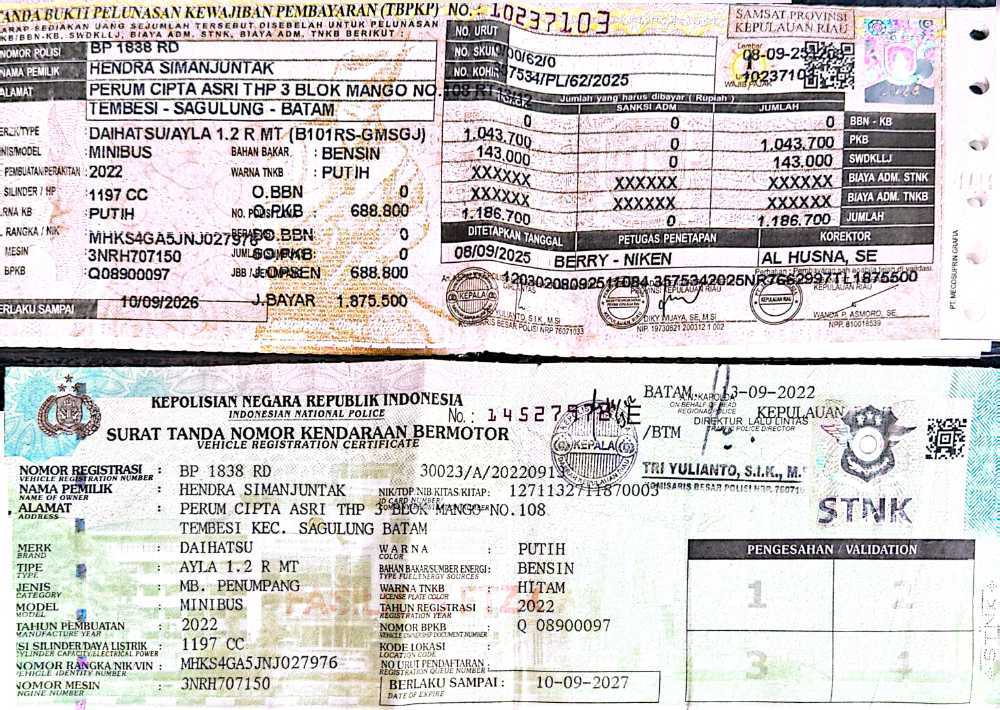 TANDA BUKTI PELUNASAN KEWAJIBAN PEMBAYARAN (TBPKP) NO.: 10237103
HARAP SEDIAKAN UANG SEJUMLAH TERSEBUT DISEBELAH UNTUK PELUNASAN
PKB/BBN-KB, SWDKLLJ, BIAYA ADM. STNK, BIAYA ADM. TNKB BERIKUT :
SAMSAT PROVINSI
KEPULAUAN RIAU
NOMOR POLISI BP 1838 RD
NAMA PEMILIK HENDRA SIMANJUNTAK
ALAMAT PERUM CIPTA ASRI THP 3 BLOK MANGO NO.108
TEMBESI - SAGULUNG - BATAM
NO. URUT
NO. SKUM 00/62/0
NO. KOHIR 57534/PL/62/2025
Lembar
08-09-25
10237103
WAJIB PAJAK
MERK/TYPE : DAIHATSU/AYLA 1.2 R MT (B101RS-GMSGJ)
JENIS/MODEL : MINIBUS BAHAN BAKAR : BENSIN
PEMBUATAN/PERAKITAN : 2022 WARNA TNKB : PUTIH
SILINDER / HP : 1197 CC O.BBN 0
WARNA KB : PUTIH NO. POLISI O.PKB : 688.800
RANGKA / NIK MHKS4GA5JNJ027976 O.BBN : 0
MESIN 3NRH707150 SO.PKB : 0
BPKB : Q08900097 OPSEN 688.800
BERLAKU SAMPAI 10/09/2026 J.BAYAR 1.875.500
Jumlah yang harus dibayar ( Rupiah )
POKOK SANKSI ADM JUMLAH
0 0 0 BBN - KB
1.043.700 0 1.043.700 PKB
143.000 0 143.000 SWDKLLJ
XXXXXX XXXXXX XXXXXX BIAYA ADM. STNK
XXXXXX XXXXXX XXXXXX BIAYA ADM. TNKB
1.186.700 0 1.186.700 JUMLAH
DITETAPKAN TANGGAL PETUGAS PENETAPAN KOREKTOR
08/09/2025 BERRY - NIKEN AL HUSNA, SE
Perhatian : Pembayaran sah apabila telah di validasi
12030208092511084 3575342025NR7682997TL1875500
KEPULAUAN RIAU
KEPALA
YULIANTO, S.I.K, M.SI
KOMISARIS BESAR POLISI NRP 76071033
DIKY WIJAYA, SE, M.SI
NIP. 19730621 200312 1 002
WANDA P. ASMORO, SE
NPP. 810018539
PT. MECOSUPRIN GRAFIA
KEPOLISIAN NEGARA REPUBLIK INDONESIA
INDONESIAN NATIONAL POLICE
No. : 14527978/E
SURAT TANDA NOMOR KENDARAAN BERMOTOR
VEHICLE REGISTRATION CERTIFICATE
/BTM
BATAM, 13-09-2022
A.N. KAPOLDA KEPULAUAN
ON BEHALF OF HEAD
REGIONAL POLICE
DIREKTUR LALU LINTAS
TRAFFIC POLICE DIRECTOR
KEPALA
TRI YULIANTO, S.I.K., M.
KOMISARIS BESAR POLISI NRP. 76071
STNK
NOMOR REGISTRASI : BP 1838 RD 30023/A/20220913
VEHICLE REGISTRATION NUMBER
NAMA PEMILIK : HENDRA SIMANJUNTAK NIK/TDP, NIB, KITAS/KITAP: 1271132711870003
NAME OF OWNER
ALAMAT : PERUM CIPTA ASRI THP 3 BLOK MANGO NO.108
ADDRESS
TEMBESI KEC. SAGULUNG BATAM
MERK : DAIHATSU WARNA : PUTIH
BRAND COLOR
TIPE : AYLA 1.2 R MT BAHAN BAKAR/SUMBER ENERGI : BENSIN
TYPE TYPE FUEL/ENERGY SOURCES
JENIS : MB. PENUMPANG WARNA TNKB : HITAM
CATEGORY LICENSE PLATE COLOR
MODEL : MINIBUS TAHUN REGISTRASI : 2022
MODEL REGISTRATION YEAR
TAHUN PEMBUATAN : 2022 NOMOR BPKB : Q 08900097
MANUFACTURE YEAR VEHICLE OWNERSHIP DOCUMENT NUMBER
ISI SILINDER/DAYA LISTRIK : 1197 CC KODE LOKASI :
CYLINDER CAPACITY/ELECTRICAL POWER LOCATION CODE
NOMOR RANGKA/NIK/VIN : MHKS4GA5JNJ027976 NO URUT PENDAFTARAN :
VEHICLE IDENTITY NUMBER REGISTRATION QUEUE NUMBER
NOMOR MESIN : 3NRH707150 BERLAKU SAMPAI : 10-09-2027
ENGINE NUMBER DATE OF EXPIRE
PENGESAHAN / VALIDATION
1 2
3 4